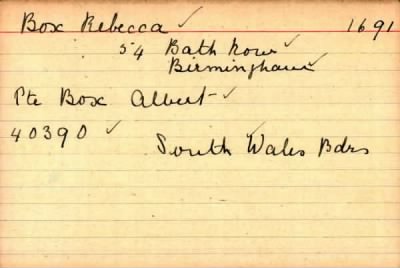 Box Rebecca ✓ 1691
54 Bath Row ✓
Birmingham ✓
Pte Box Albert ✓
40390 ✓
South Wales Bdrs ✓